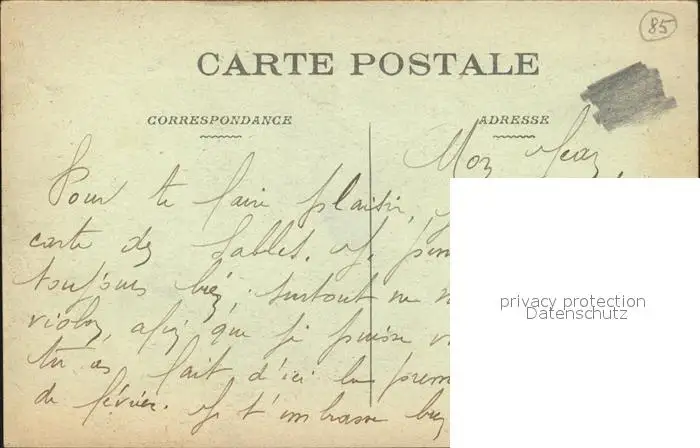 85
CARTE POSTALE
CORRESPONDANCE
ADRESSE
Mon Jean,
Pour te faire plaisir,
carte des Sables. Je
toujours bien, surtout ne
violon, afin que je puisse
tu as fait d'ici le prem
de février. Je t'embrasse bien
privacy protection
Datenschutz